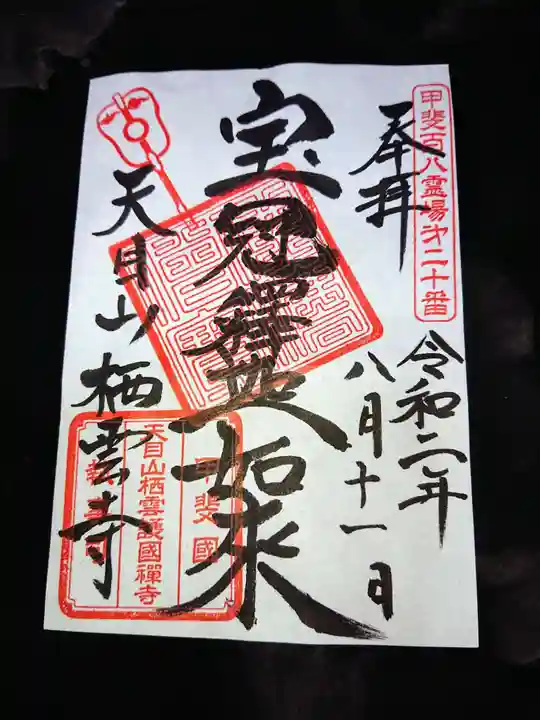 甲斐百八霊場第二十番
奉拝
令和二年
八月十一日
宝冠釋迦如来
天目山栖雲寺
甲斐國
天目山栖雲護國禪寺